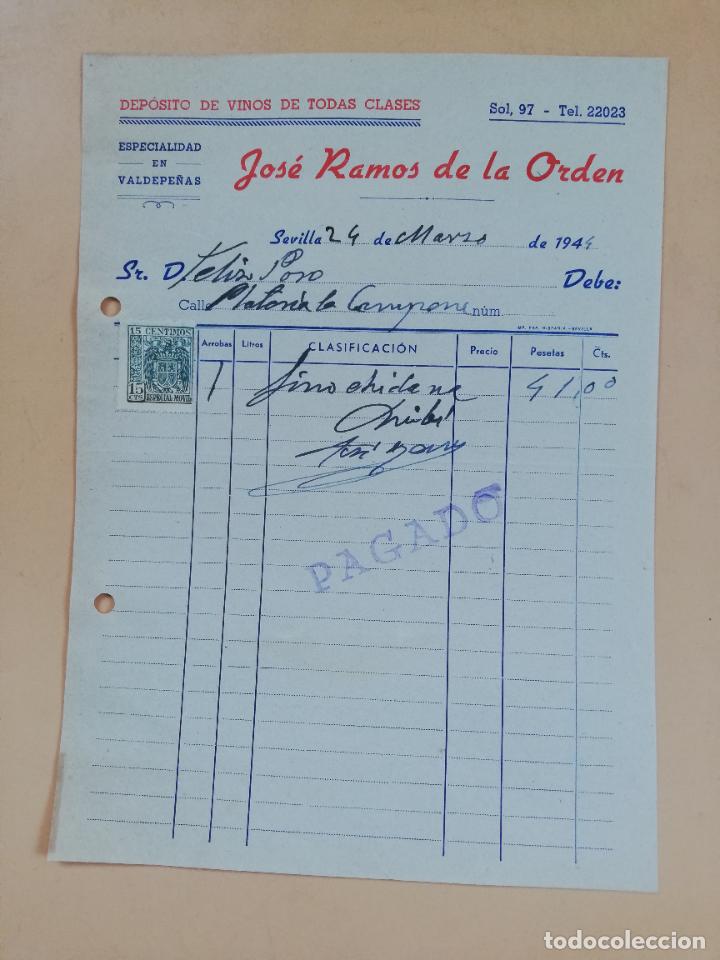 DEPÓSITO DE VINOS DE TODAS CLASES
Sol, 97 - Tel. 22023
ESPECIALIDAD
EN
VALDEPEÑAS
José Ramos de la Orden
Sevilla 24 de Marzo de 1944
Sr. D. Felix Poso Debe:
Calle la Campana núm.
15 CENTIMOS
15 CTS ESPECIAL MOVIL
Arrobas Litros CLASIFICACIÓN Precio Pesetas Cts.
1 fino 41,00
Recibí
José Ramos
PAGADO
todocoleccion
todocoleccion.net